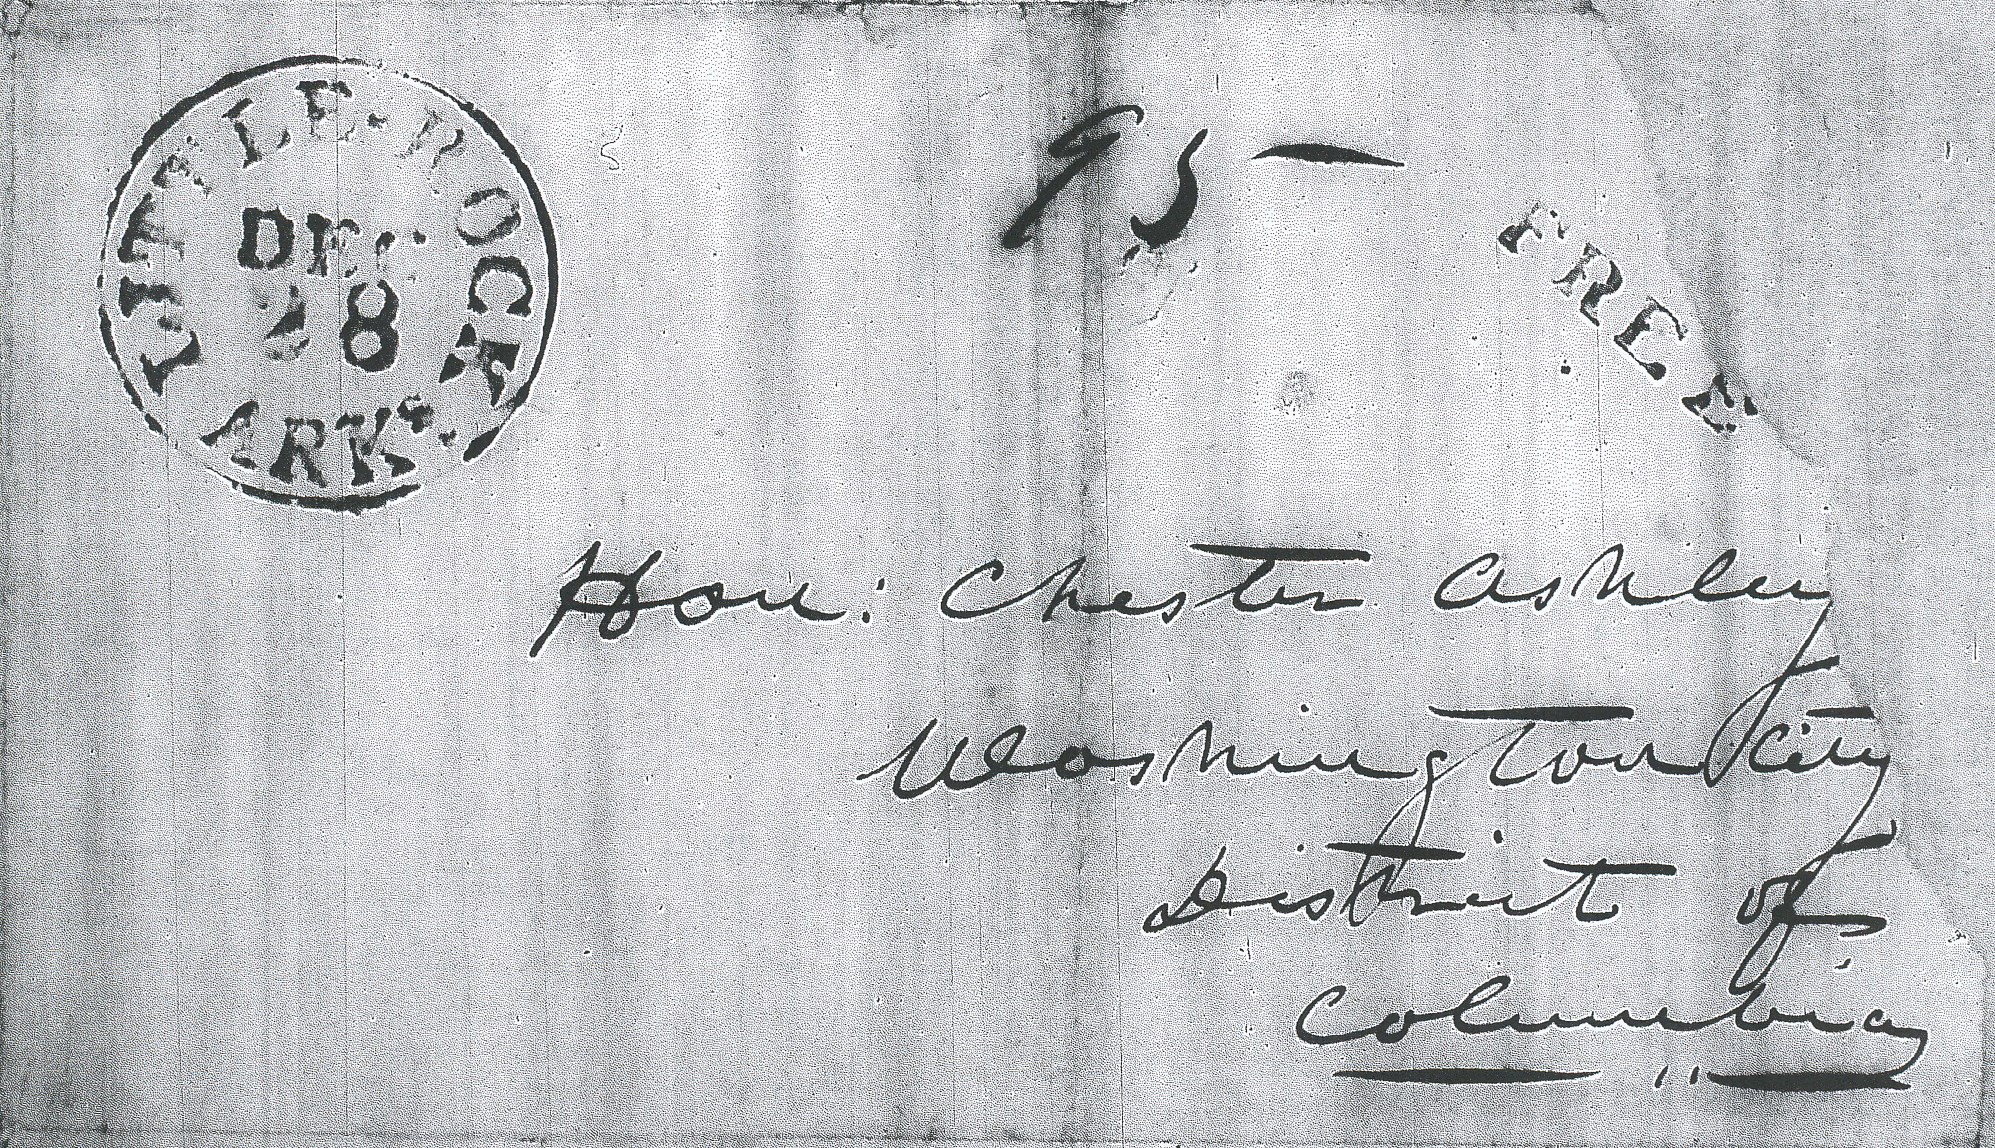 LITTLE-ROCK
DEC
28
ARKs.
95 —
FREE
Hon: Chester Ashley
Washington City
District of
Columbia